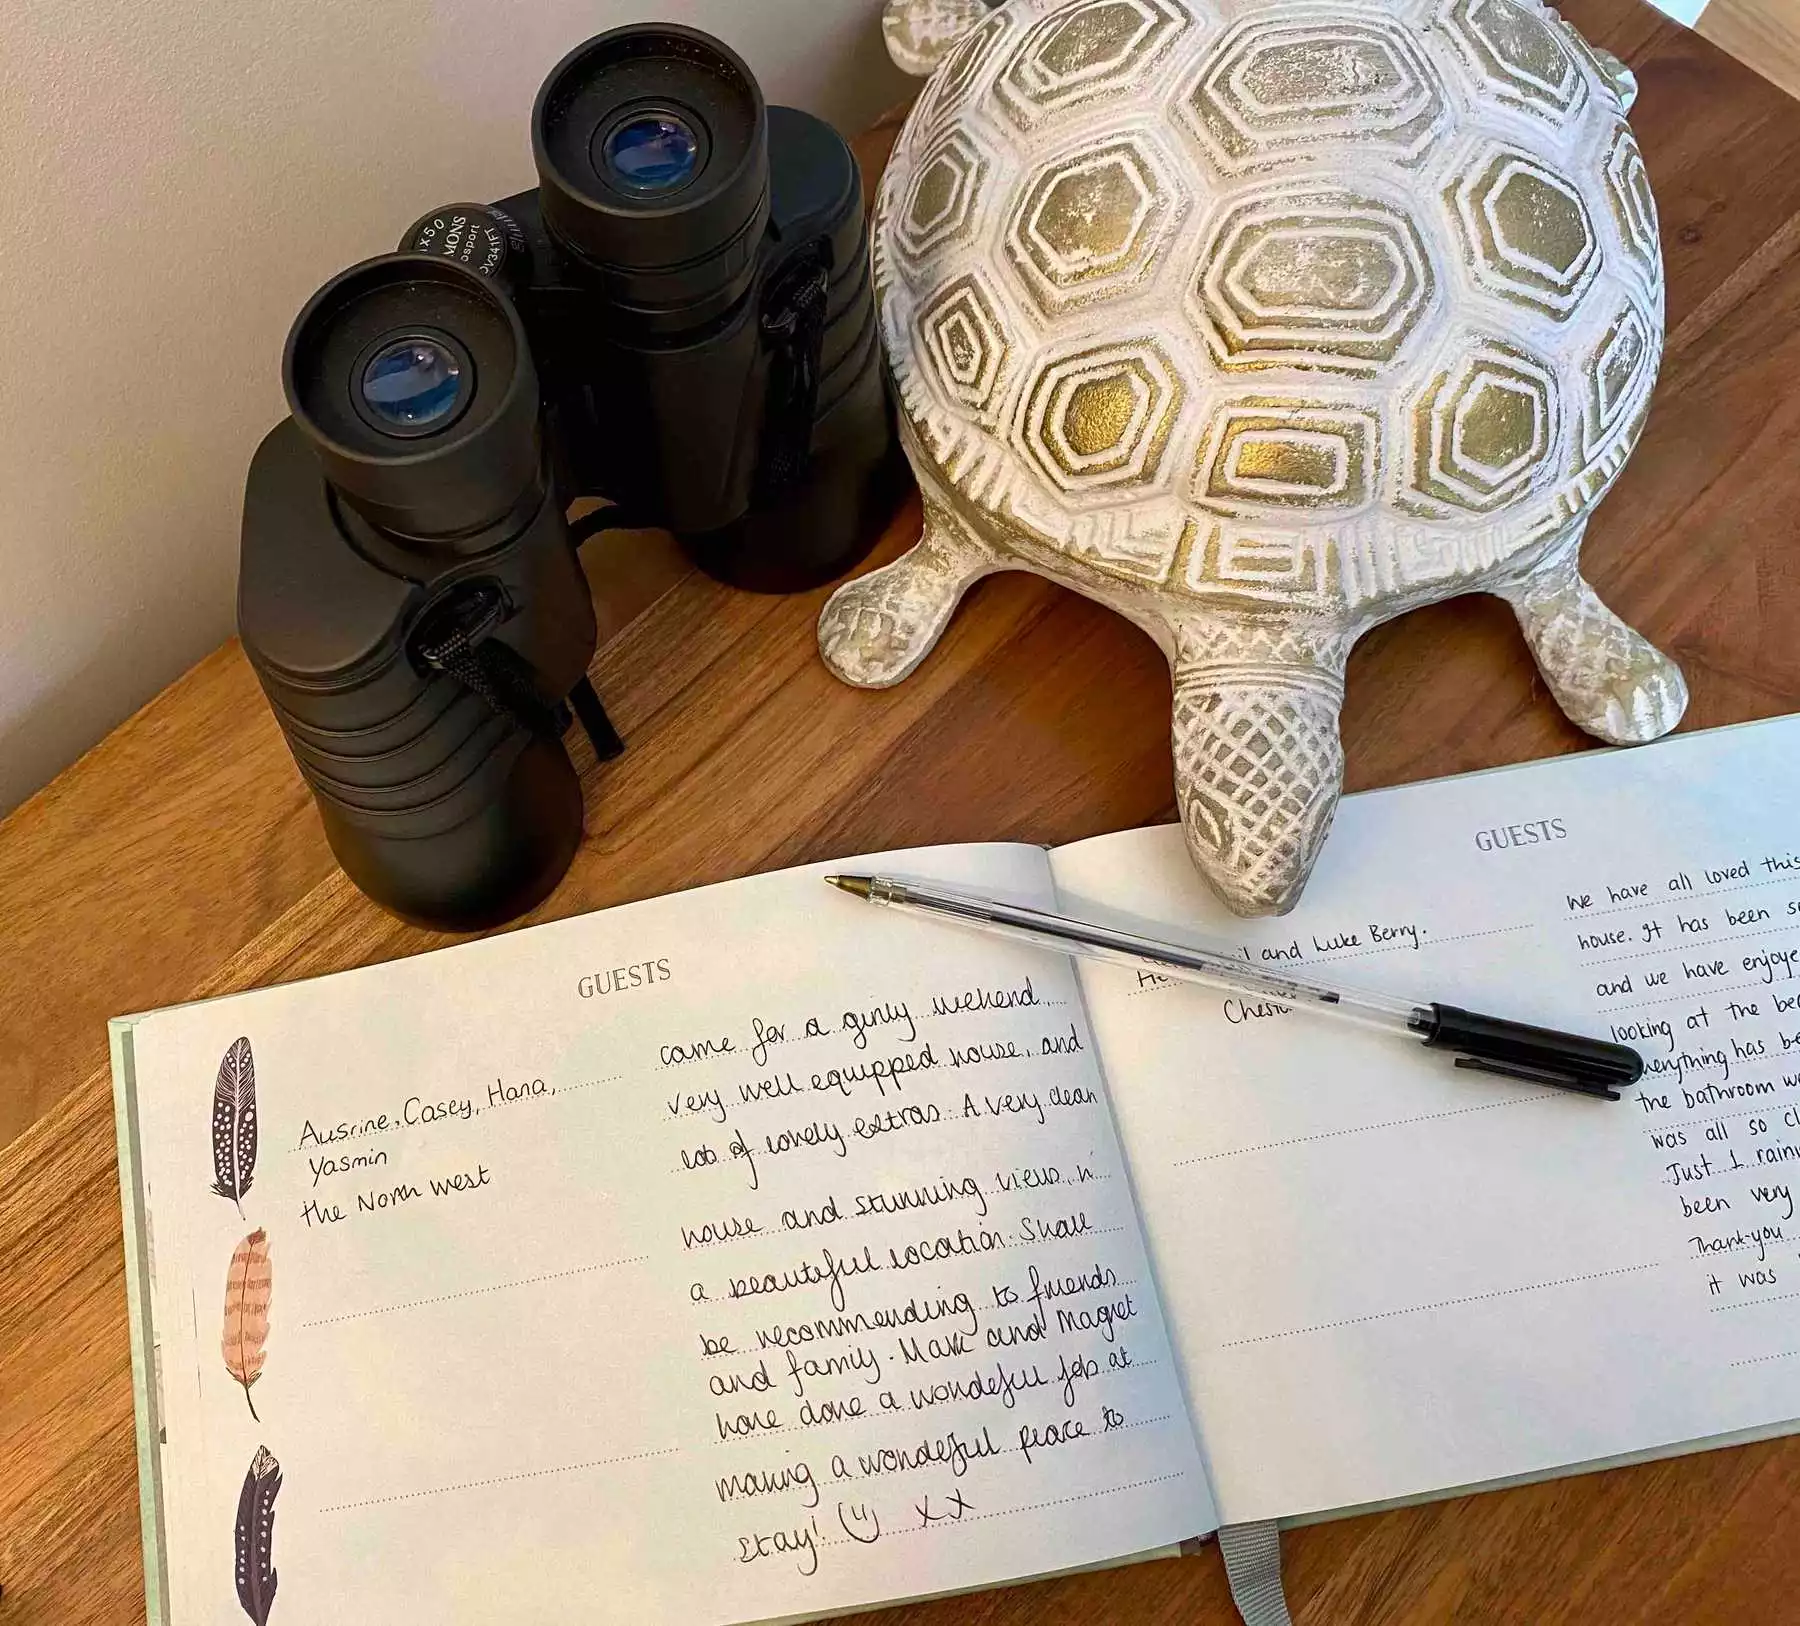 x50
MONS
osport
0V341FT
GUESTS
Ausrine, Casey, Hana,
Yasmin
the North west
came for a girly wekend,
very well equipped house, and
lots of lovely extras. A very clean
house and stunning views, in
a beautiful location. Shall
be recommending to friends
and family. Mark and Magret
have done a wondeful job at
making a wondeful place to
stay! xx
GUESTS
and Luke Berry.
He
We have all loved this
house. It has been so
and we have enjoye
looking at the bea
everything has be
the bathroom w
was all so cl
Just 1 rainy
been very
Thank-you
it was